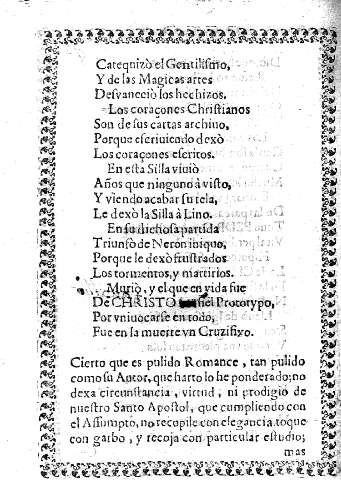 Catequizò el Gentilismo,
Y de las Magicas artes
Desvaneciò los hechizos.
Los coraçones Christianos
Son de sus cartas archivo,
Porque escriuiendo dexò
Los coraçones escritos.
En esta Silla viuiò
Años que ninguno à visto,
Y viendo acabar su tela,
Le dexò la Silla à Lino.
En su dichosa partida
Triunfò de Neron iniquo,
Porque le dexò frustrados
Los tormentos, y martirios.
Muriò, y el que en vida fue
De CHRISTO fiel Prototypo,
Por vniuocarse en todo,
Fue en sa muerte vn Cruzifixo.
Cierto que es pulido Romance, tan pulido
como su Autor, que harto lo he ponderado; no
dexa circunstancia, virtud, ni prodigio de
nuestro Santo Apostol, que cumpliendo con
el Assumpto, no recopile con elegancia, toque
con garbo, y recoja con particular estudio;
mas